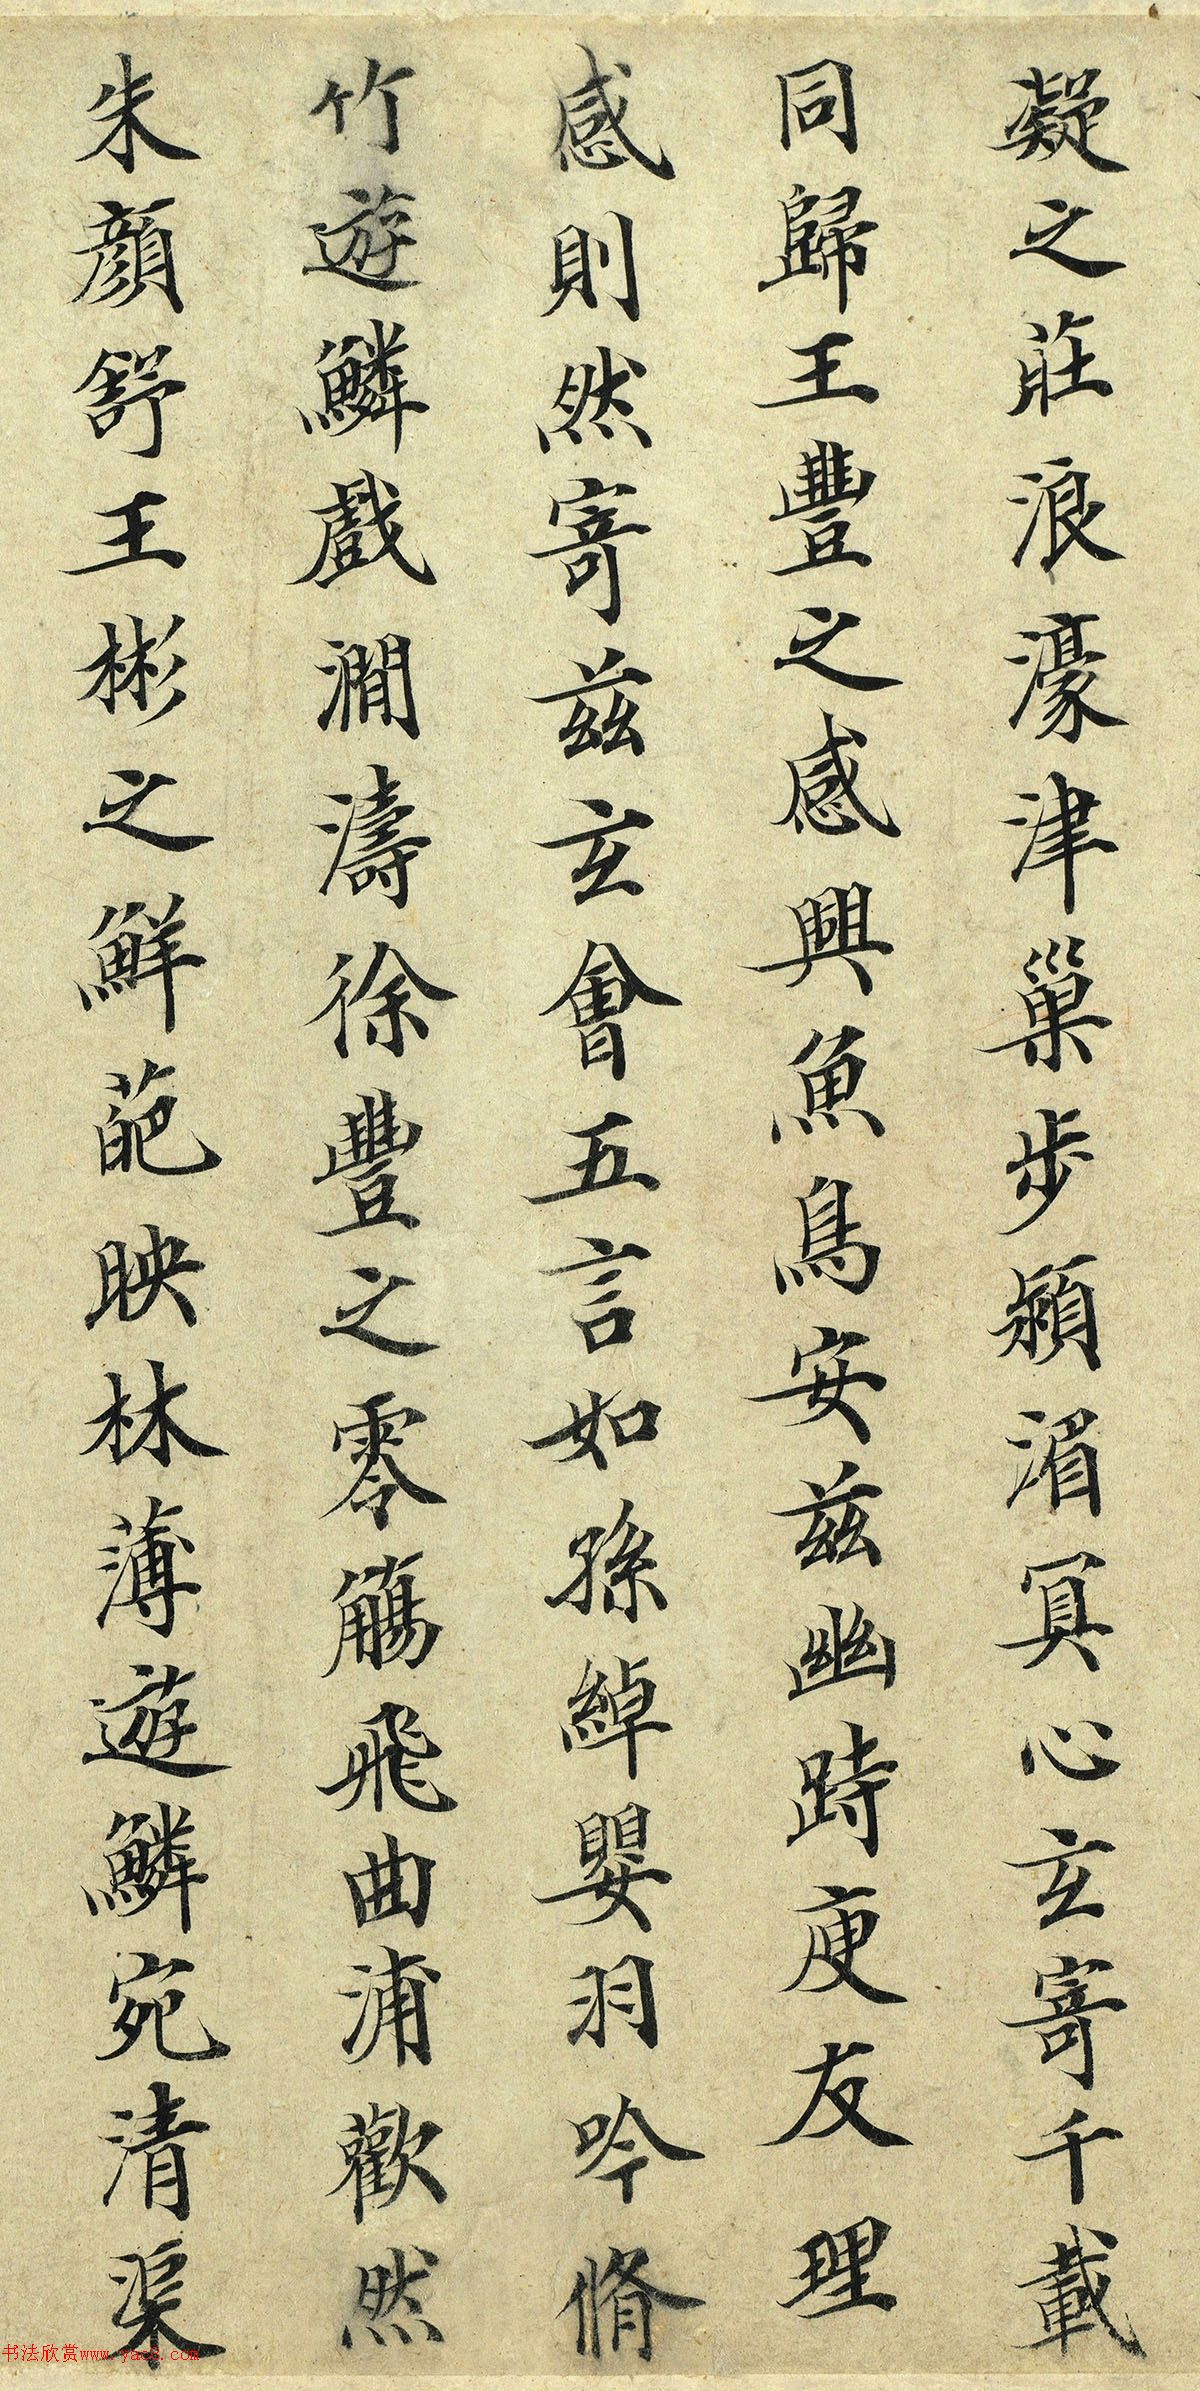 凝之莊浪濠津巢步潁湄冥心玄寄千載
同歸王豐之感興魚鳥安茲幽跱庾友理
感則然寄茲玄會五言如孫綽嬰羽吟脩
竹遊鱗戲澗濤徐豐之零觴飛曲浦歡然
朱顏舒王彬之鮮葩映林薄遊鱗宛清渠
书法欣赏www.yac8.com